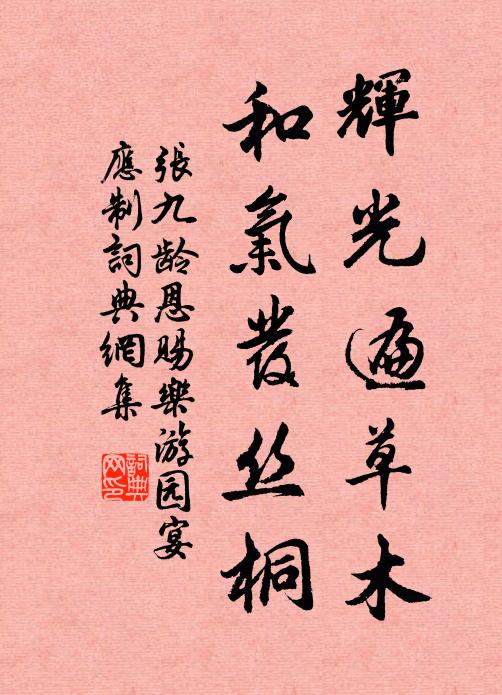 輝光遍草木
和氣發丝桐
張九龄恩賜樂游园宴
應制詞典網集
詞典網印